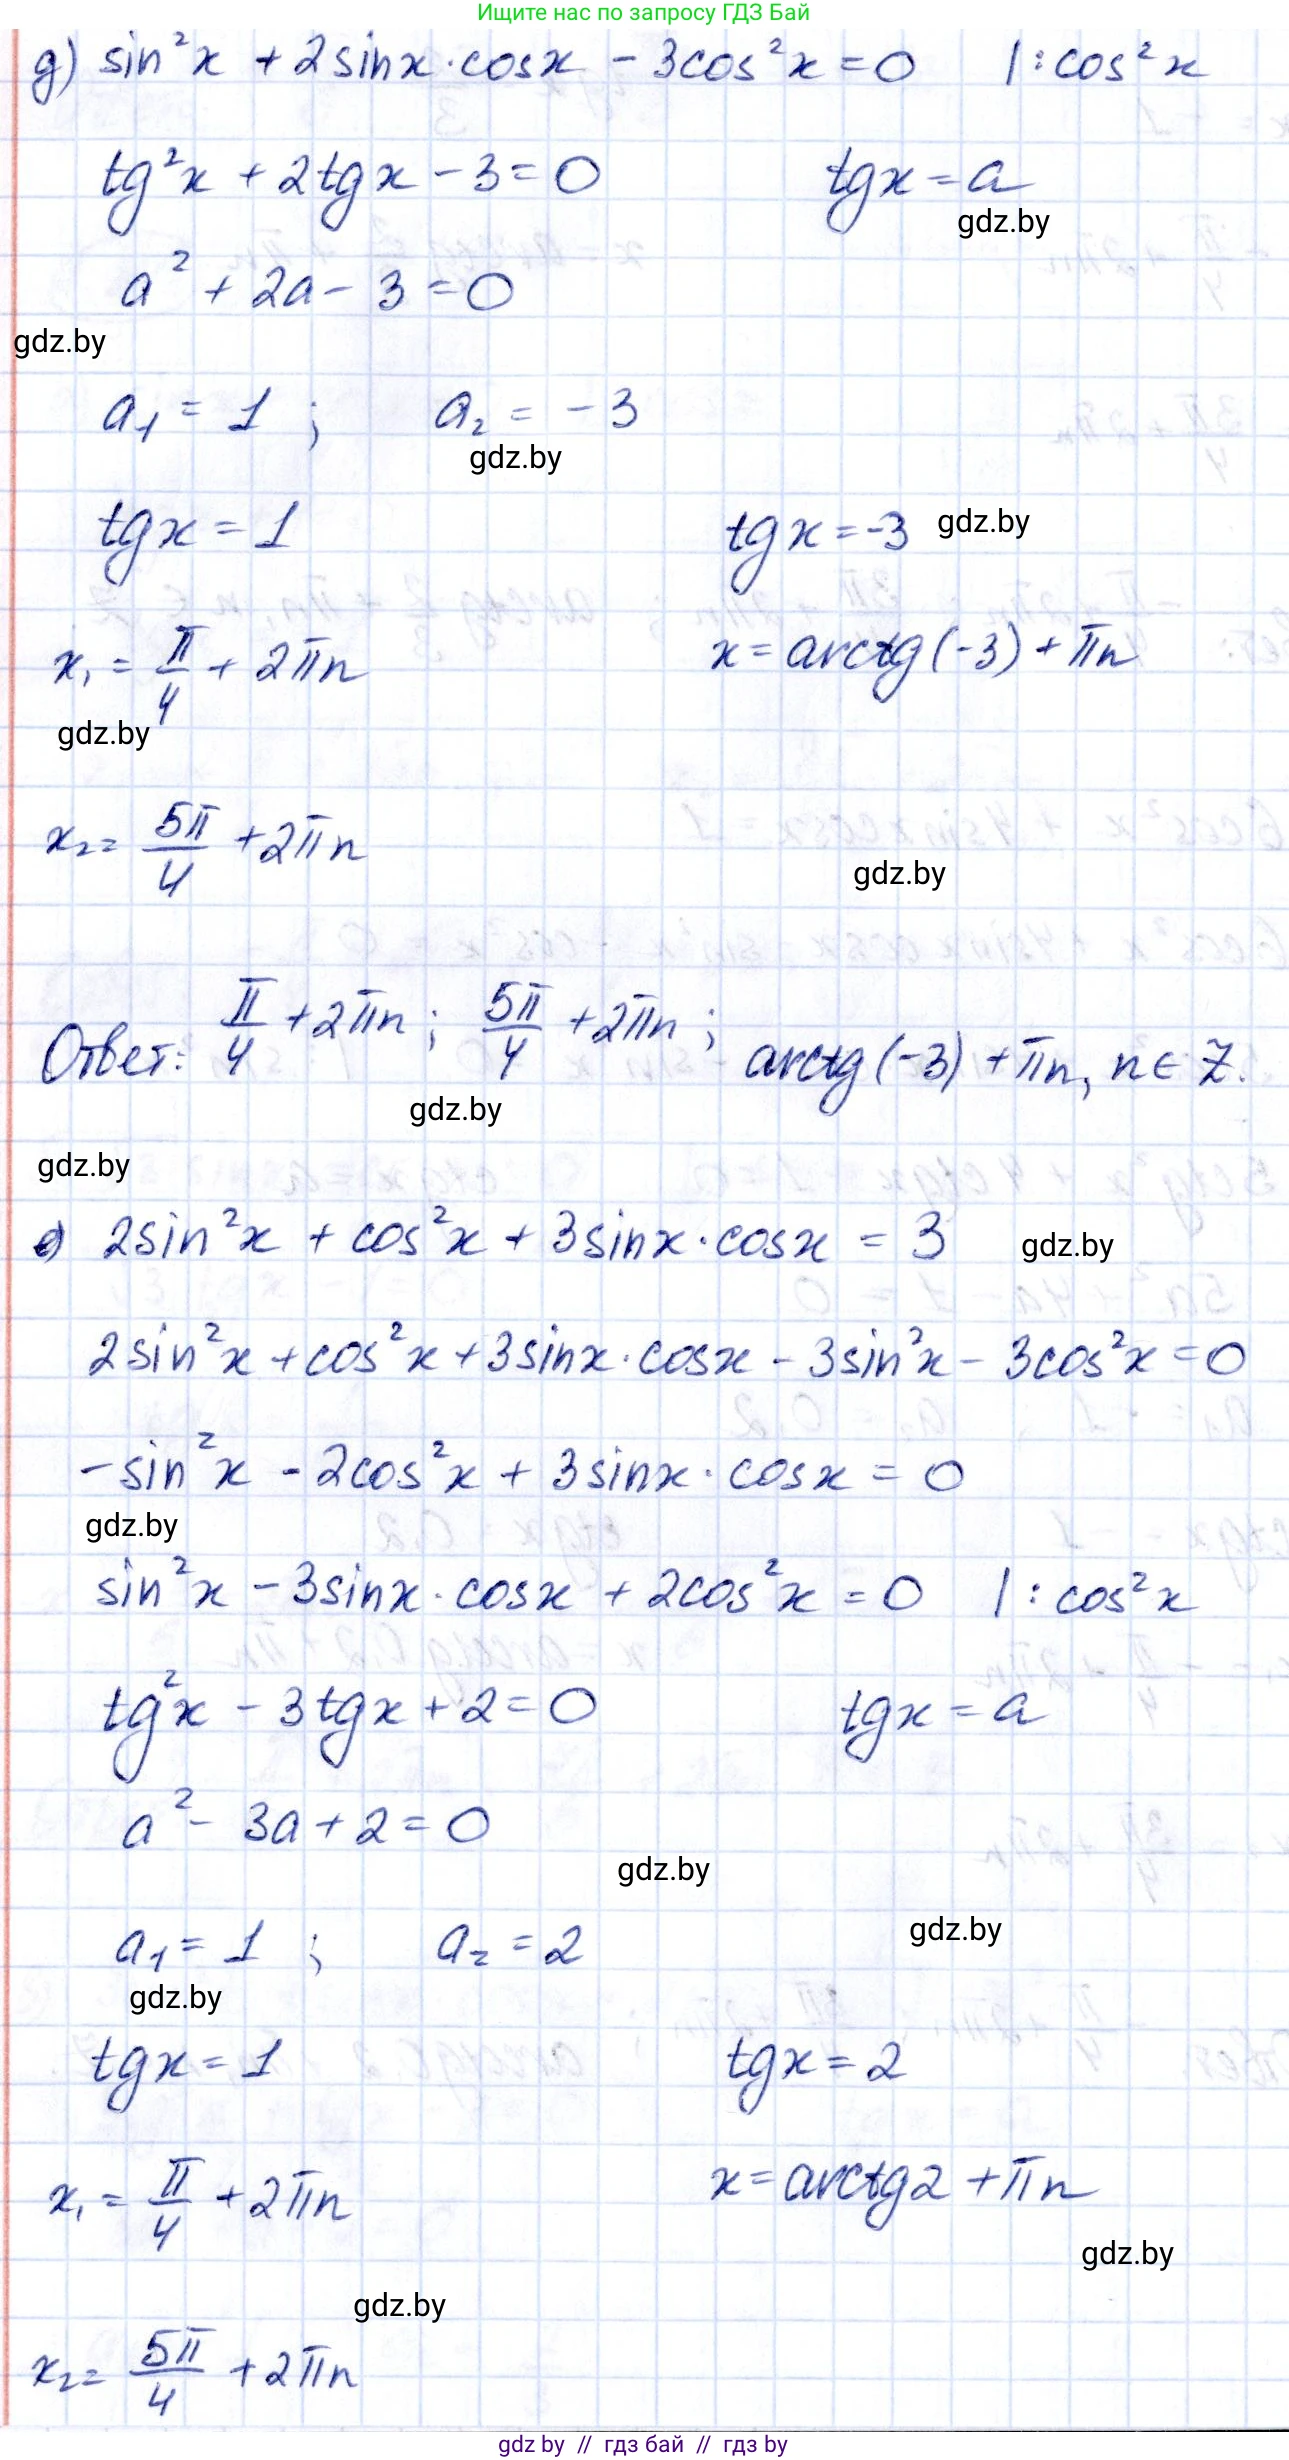 Ищите нас по запросу ГДЗ Бай
д) sin²x + 2sinx·cosx - 3cos²x = 0 | : cos²x
tg²x + 2tgx - 3 = 0 tgx = a
gdz.by
a² + 2a - 3 = 0
gdz.by
a₁ = 1 ; a₂ = -3
gdz.by
tgx = 1 tgx = -3 gdz.by
x₁ = π/4 + 2πn x = arctg(-3) + πn
gdz.by
x₂ = 5π/4 + 2πn
gdz.by
Ответ: π/4 + 2πn ; 5π/4 + 2πn ; arctg(-3) + πn, n ∈ Z.
gdz.by
gdz.by
е) 2sin²x + cos²x + 3sinx·cosx = 3 gdz.by
2sin²x + cos²x + 3sinx·cosx - 3sin²x - 3cos²x = 0
-sin²x - 2cos²x + 3sinx·cosx = 0
gdz.by
sin²x - 3sinx·cosx + 2cos²x = 0 | : cos²x
tg²x - 3tgx + 2 = 0 tgx = a
a² - 3a + 2 = 0
gdz.by
a₁ = 1 ; a₂ = 2 gdz.by
gdz.by
tgx = 1 tgx = 2
x₁ = π/4 + 2πn x = arctg2 + πn
gdz.by
gdz.by
x₂ = 5π/4 + 2πn
gdz by // гдз бай // гдз by